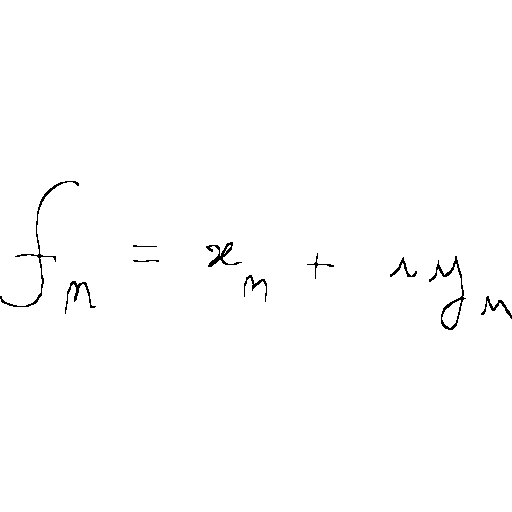 f_n = x_n + iy_n